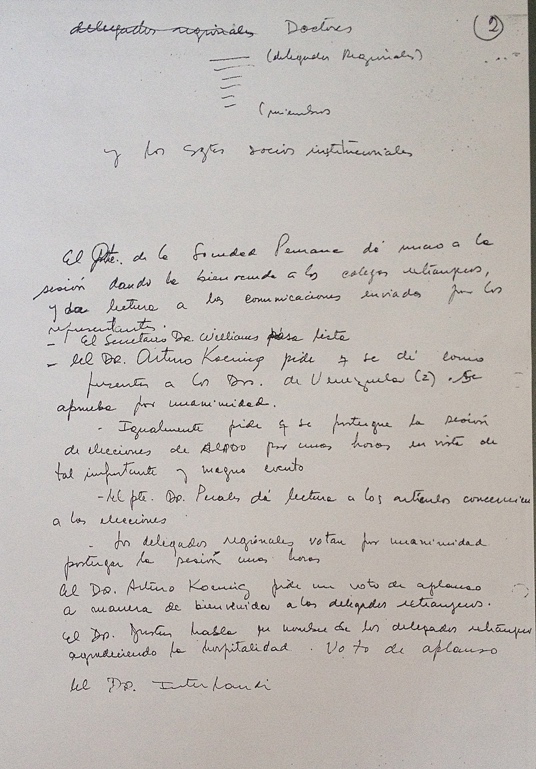 delegados regionales Doctores
2
(delegados Regionales)
(miembros
y los sgtes socios institucionales
El Pte. de la Sociedad Peruana dá inicio a la
sesión dando la bienvenida a los colegas extranjeros,
y da lectura a las comunicaciones enviadas por los
representantes.
- El Secretario Dr. Williams pasa lista
- El DR. Arturo Koenig pide q se dé como
presentes a los Drs. de Venezuela (2). Se
aprueba por unanimidad.
- Igualmente pide q se postergue la sesión
de elecciones de ALADO por unas horas en vista de
tal importante y magno evento
- El pte. Dr. Perales dá lectura a los artículos
a las elecciones
- Los delegados regionales votan por unanimidad
postergar la sesión unas horas
El Dr. Arturo Koenig pide un voto de aplauso
a manera de bienvenida a los delegados extranjeros.
El Dr. Justus habla en nombre de los delegados
agradeciendo la hospitalidad. Voto de aplauso
El Dr. Interlandi